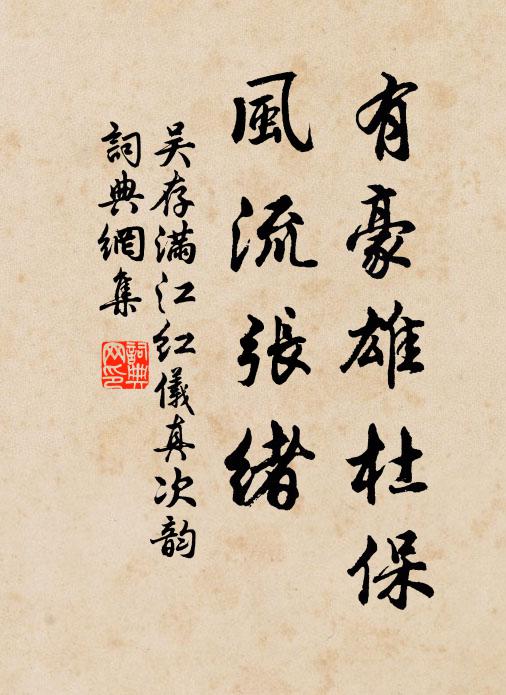 有豪雄杜保
風流張緒
吴存满江红儀真次韵
詞典網集
詞典网印